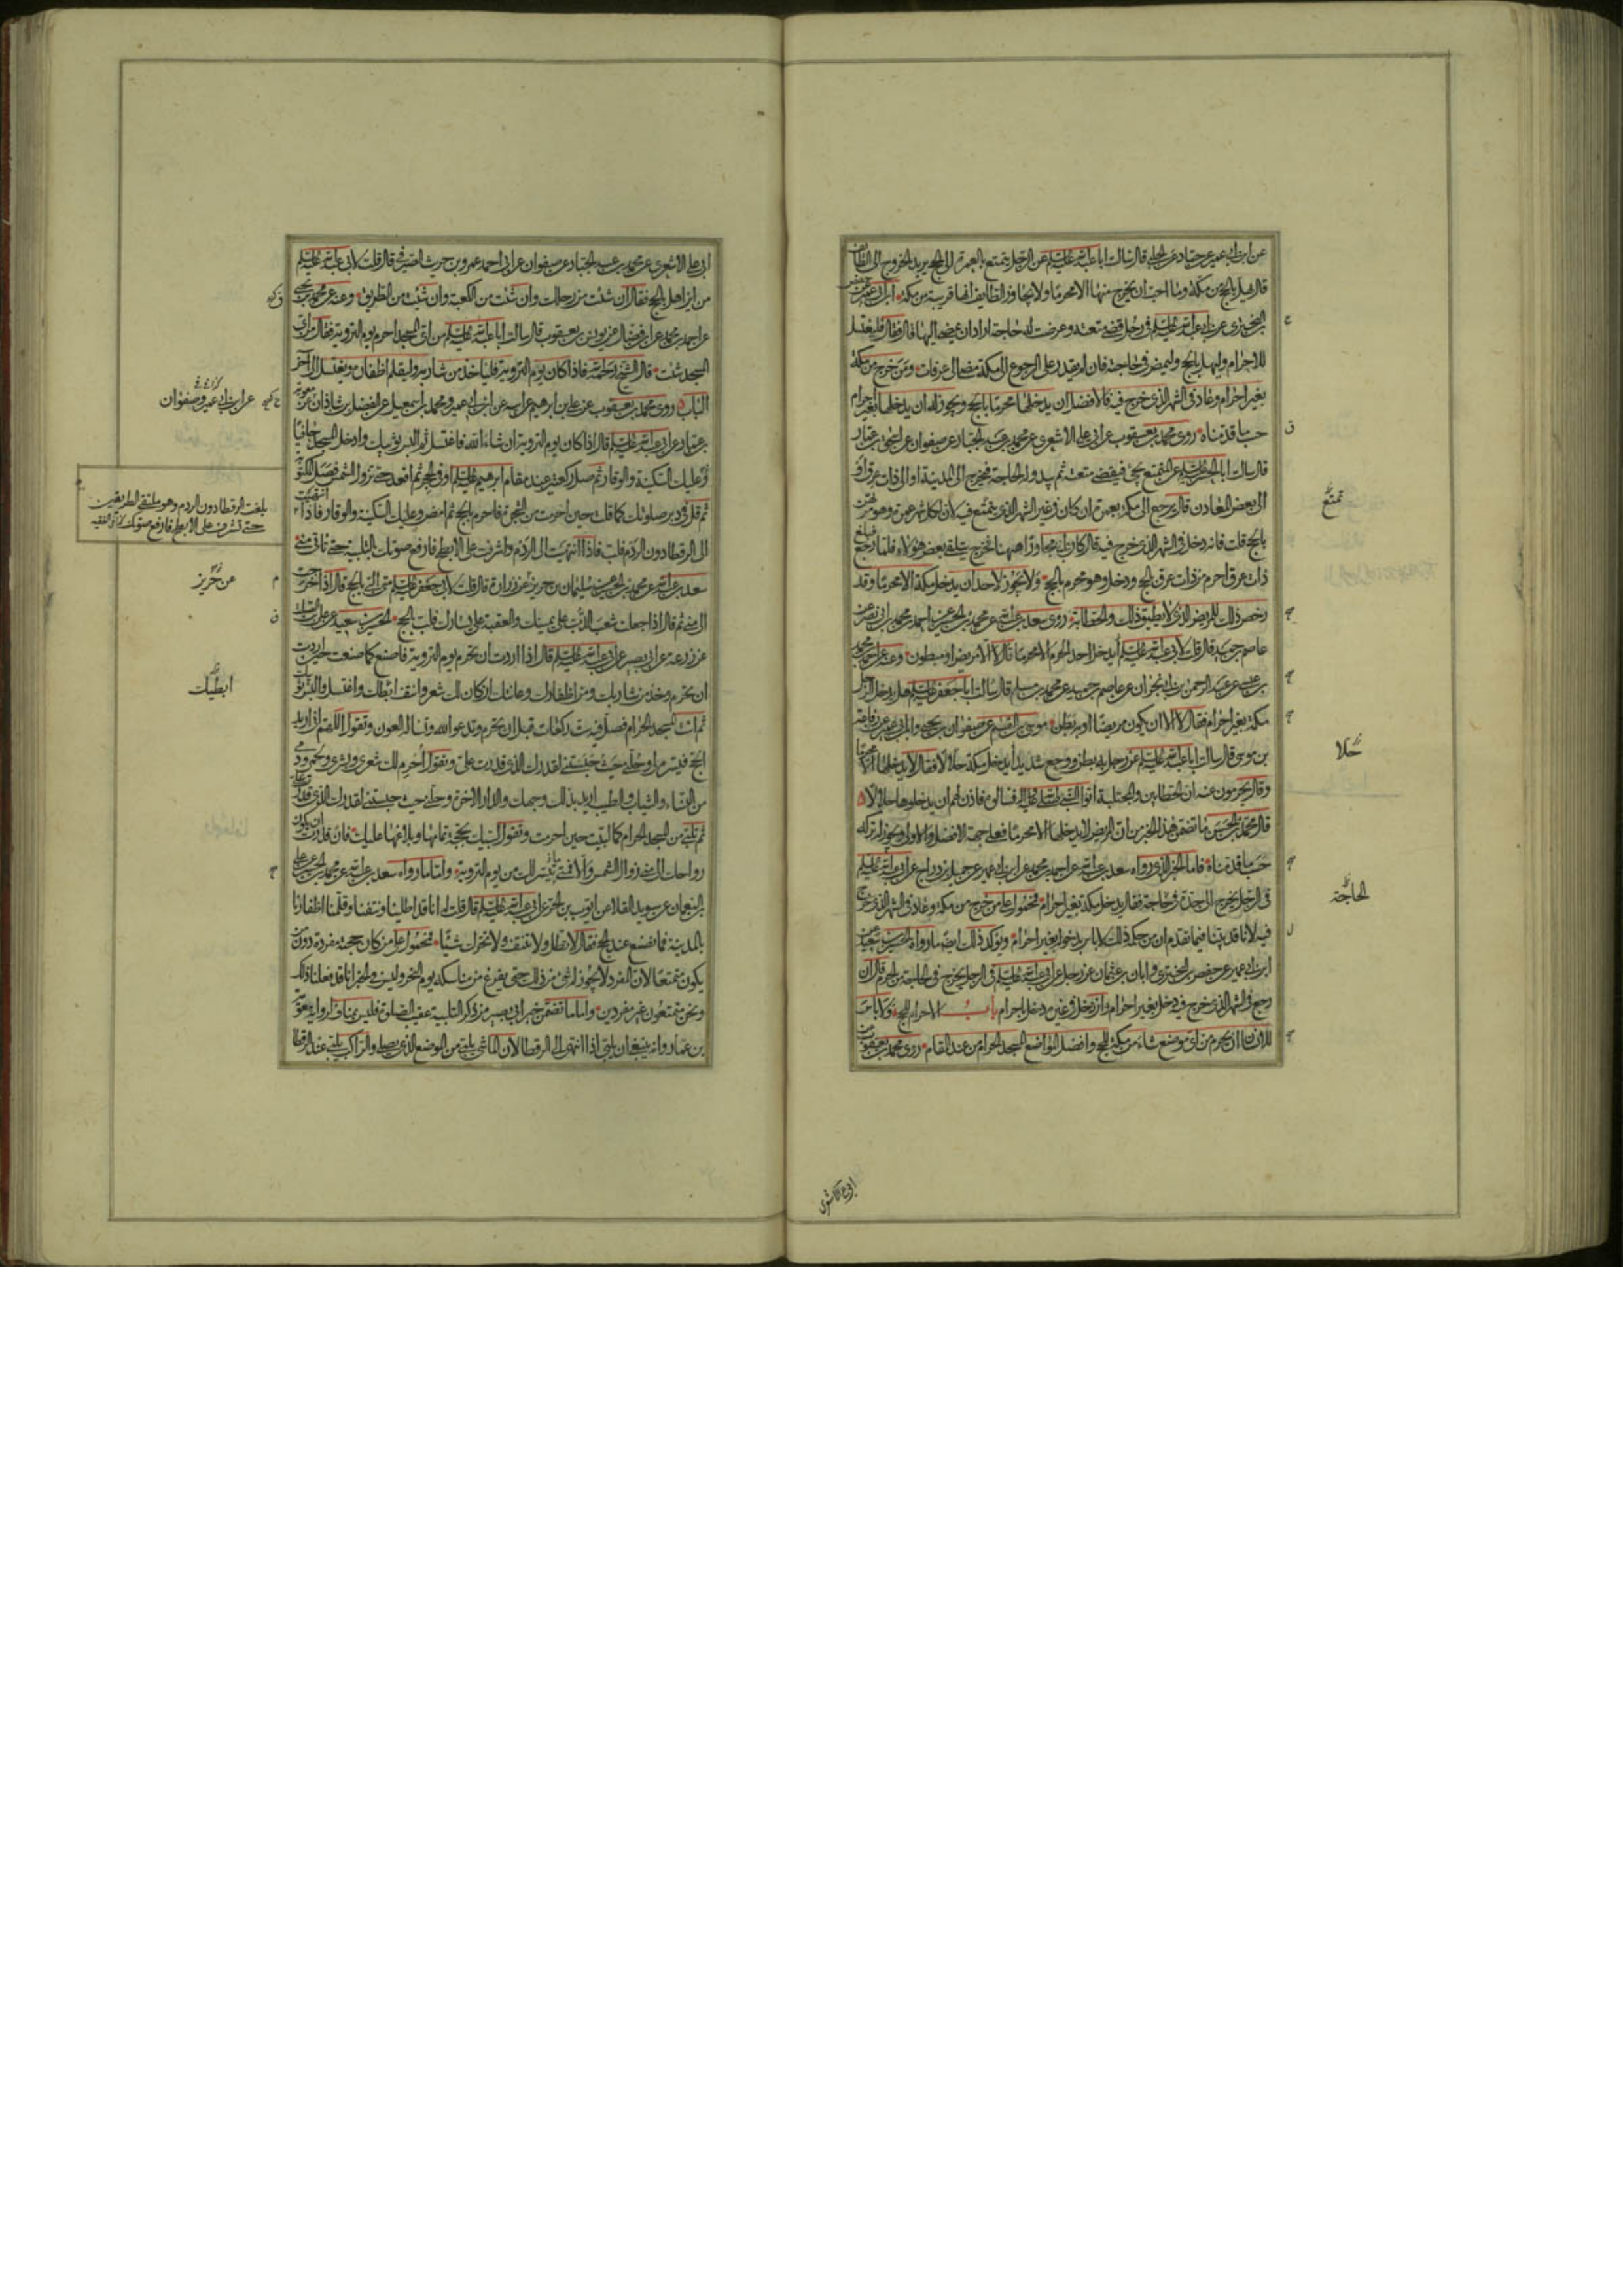 عن ابن ابي عمير عن حماد عن الحلبي قال سالت ابا عبد الله عليه السلم عن الرجل يتمتع بالعمرة الى الحج يريد الخروج الى الطايف
قال يهل بالحج من مكة وما احب ان يخرج منها الا محرما ولا يتجاوز الطايف انها قريبة من مكة ابن ابي عمير عن حفص
بن البختري عن ابي عبد الله عليه السلم في رجل قضى متعته وعرضت له حاجة اراد ان يمضي اليها قال فقال فليغتسل
للاحرام وليهل بالحج وليمض في حاجته فان لم يقدر على الرجوع الى مكة مضى الى عرفات ومن خرج من مكة
بغير احرام وعاد في الشهر الذي خرج فيه فالافضل ان يدخلها محرما بالحج ويجوز له ان يدخلها بغير احرام
حسب ما قدمناه روى محمد بن يعقوب عن ابي علي الاشعري عن محمد بن عبد الجبار عن صفوان عن اسحق بن عمار
قال سالت ابا الحسن عليه السلم عن المتمتع يجئ فيقضي متعته ثم يبدو له الحاجة فيخرج الى المدينة او الى ذات عرق او
الى بعض المعادن قال يرجع الى مكة بعمرة ان كان في غير الشهر الذي يتمتع فيه لان لكل شهر عمرة وهو مرتهن
بالحج قلت فانه دخل في الشهر الذي خرج فيه قال كان ابي مجاورا هيهنا فخرج يتلقى بعض هؤلاء فلما رجع فبلغ
ذات عرق احرم من ذات عرق بالحج ودخل وهو محرم بالحج ولا يجوز لاحد ان يدخل مكة الا محرما وقد
رخص ذلك للمريض الذي لا يطيق ذلك والحطابة روى سعد بن عبد الله عن محمد بن الحسين عن احمد بن محمد بن ابي نصر عن
عاصم بن حميد قال قلت لابي عبد الله عليه السلم أيدخل احد الحرم الا محرما قال لا الا مريض او مبطون وعنه عن احمد بن محمد
بن عيسى عن عبد الرحمن بن ابي نجران عن عاصم بن حميد عن محمد بن مسلم قال سالت ابا جعفر عليه السلم هل يدخل الرجل
مكة بغير احرام فقال لا الا ان يكون مريضا او به بطن موسى بن القسم عن صفوان بن يحيى وابن ابي عمير عن رفاعة
بن موسى قال سالت ابا عبد الله عليه السلم عن رجل به بطن ووجع شديد أيدخل مكة حلالا فقال لا يدخلها الا محرما
وقال يحرمون عنه ان الحطابين والمجتلبة اتوا النبي صلى الله عليه واله فسالوه فاذن لهم ان يدخلوها حلالا
قال محمد بن الحسن ما تضمن هذا الخبر من ان المريض لا يدخلها الا محرما فعلى جهة الافضل والاولى ويجوز له تركه
حسب ما قدمناه فاما الخبر الذي رواه سعد بن عبد الله عن احمد بن محمد عن ابن ابي عمير عن جميل بن دراج عن ابي عبد الله عليه السلم
في الرجل يخرج الى جدة في حاجة فقال يدخل مكة بغير احرام فمحمول على من خرج من مكة وعاد في الشهر الذي خرج
فيه لانا قد بينا فيما تقدم ان من حكم ذلك لا باس بدخوله بغير احرام ويؤكد ذلك ايضا ما رواه الحسين بن سعيد عن
ابن ابي عمير عن حفص بن البختري وابان بن عثمان عن رجل عن ابي عبد الله عليه السلم في الرجل يخرج في الحاجة من الحرم قال ان
رجع في الشهر الذي خرج فيه دخل بغير احرام وان دخل في غيره دخل باحرام باب الاحرام للحج ولا باس
للانسان ان يحرم من اي موضع شاء من مكة للحج وافضل المواضع المسجد الحرام من عند المقام روى محمد بن يعقوب عن
تمتع
حلالا
الحاجة
ابي علي الاشعري
ابي علي الاشعري عن محمد بن عبد الجبار عن صفوان عن ابي احمد عمرو بن حريث الصيرفي قال قلت لابي عبد الله عليه السلم
من اين اهل بالحج فقال ان شئت من رحلك وان شئت من الكعبة وان شئت من الطريق وعنه عن محمد بن يحيى
عن احمد بن محمد عن ابن فضال عن يونس بن يعقوب قال سالت ابا عبد الله عليه السلم من اي المسجد احرم يوم التروية فقال من اي
المسجد شئت قال الشيخ رحمه الله فاذا كان يوم التروية فلياخذ من شاربه وليقلم اظفاره ويغتسل الى آخر
الباب روى محمد بن يعقوب عن علي بن ابرهيم عن ابيه عن ابن ابي عمير ومحمد بن اسمعيل عن الفضل بن شاذان عن معوية
بن عمار عن ابي عبد الله عليه السلم قال اذا كان يوم التروية ان شاء الله فاغتسل ثم البس ثوبيك وادخل المسجد حافيا
وعليك السكينة والوقار ثم صل ركعتين عند مقام ابرهيم عليه السلم او في الحجر ثم اقعد حتى تزول الشمس فصل المكتوبة
ثم قل في دبر صلوتك كما قلت حين احرمت من الشجرة فاحرم بالحج ثم امض وعليك السكينة والوقار فاذا انتهيت
الى الرقطا دون الردم فلب فاذا انتهيت الى الردم واشرفت على الابطح فارفع صوتك بالتلبية حتى تاتي منى
سعد بن عبد الله عن محمد بن الحسين عن سليمان بن حريز عن زرارة قال قلت لابي جعفر عليه السلم متى البي بالحج قال اذا خرجت
الى منى ثم قال اذا جعلت شعب الدب على يمينك والعقبة على يسارك فلب بالحج الحسين بن سعيد عن علي بن الصلت
عن زرعة عن ابي بصير عن ابي عبد الله عليه السلم قال اذا اردت ان تحرم يوم التروية فاصنع كما صنعت حين اردت
ان تحرم وخذ من شاربك ومن اظفارك وعانتك ان كان لك شعر وانتف ابطك واغتسل والبس ثوبيك
ثم ائت المسجد الحرام فصل فيه ست ركعات قبل ان تحرم وتدعو الله وتساله العون وتقول اللهم اني اريد
الحج فيسره لي وحلني حيث حبستني لقدرك الذي قدرت علي وتقول احرم لك شعري وبشري ولحمي ودمي
من النساء والثياب والطيب اريد بذلك وجهك والدار الاخرة وحلني حيث حبستني لقدرك الذي قدرت علي
ثم تلبي من المسجد الحرام كما لبيت حين احرمت وتقول لبيك بحجة تمامها وبلاغها عليك فان قدرت ان يكون
رواحك الى منى زوال الشمس والا فمتى تيسر لك من يوم التروية واما ما رواه سعد بن عبد الله عن محمد بن الحسين عن علي
بن النعمان عن سويد القلا عن ايوب بن الحر عن ابي عبد الله عليه السلم قال قلت له انا قد اطلينا ونتفنا وقلمنا اظفارنا
بالمدينة فما نصنع عند الحج فقال لا تطل ولا تنتف ولا تحرك شيئا فمحمول على من كان حجته مفردة دون من
يكون متمتعا لان المفرد لا يجوز له شئ من ذلك حتى يفرغ من مناسكه يوم النحر وليس في الخبر انا قد فعلنا ذلك
ونحن متمتعون غير مفردين واما ما تضمن خبر ابي بصير من ذكر التلبية عقيب الصلوة فليس بمناف لرواية معوية
بن عمار وانه ينبغي ان يلبي اذا انتهى الى الرقطا لان الماشي يلبي من الموضع الذي يصلي والراكب يلبي عند الرقطا
عن ابن ابي عمير وصفوان
بلغت الرقطا دون الردم وهو ملتقى الطريقين
حتى تشرف على الابطح فارفع صوتك
عن حريز
ابطيك